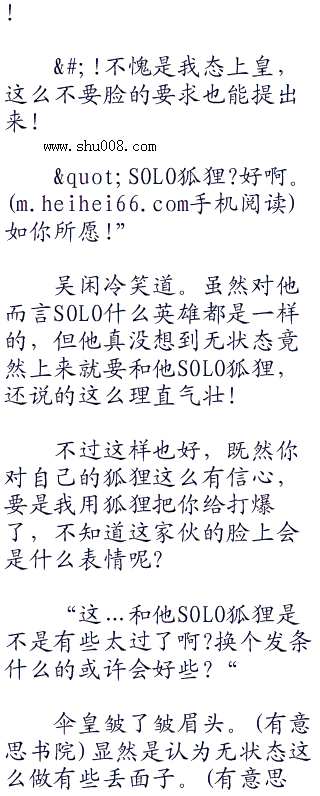 !
&#;!不愧是我态上皇，
这么不要脸的要求也能提出
来!
www.shu008.com
&quot;SOLO狐狸?好啊。
(m.heihei66.com手机阅读)
如你所愿!”
吴闲冷笑道。虽然对他
而言SOLO什么英雄都是一样
的，但他真没想到无状态竟
然上来就要和他SOLO狐狸，
还说的这么理直气壮!
不过这样也好，既然你
对自己的狐狸这么有信心，
要是我用狐狸把你给打爆
了，不知道这家伙的脸上会
是什么表情呢?
“这…和他SOLO狐狸是
不是有些太过了啊?换个发条
什么的或许会好些?“
伞皇皱了皱眉头。(有意
思书院)显然是认为无状态这
么做有些丢面子。(有意思